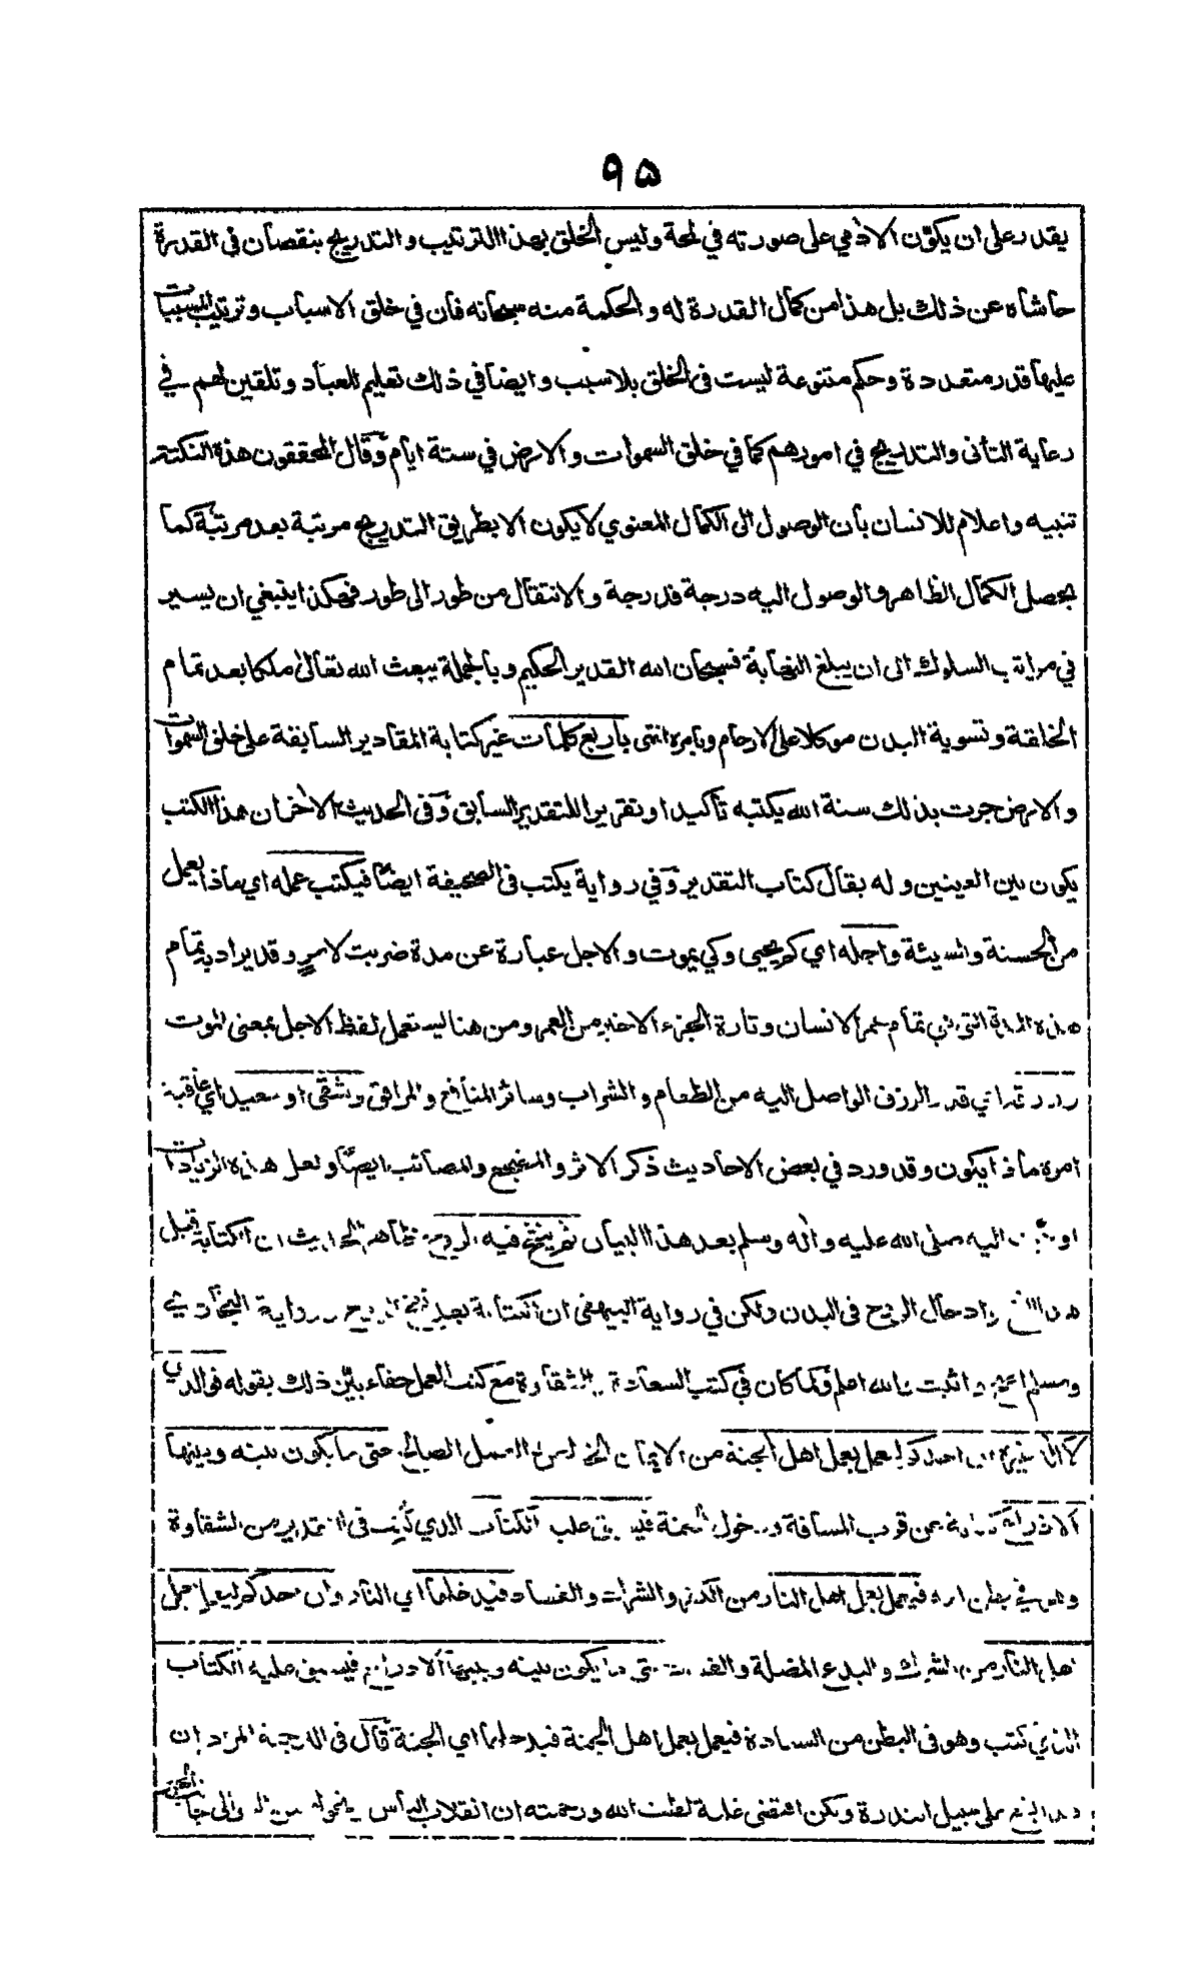 ٩٥
يقدر على ان يكوّن الاذمي على صورته في لمحة وليس الخلق بهذا الترتيب والتدريج بنقصان في القدرة
حاشاه عن ذلك بل هذا من كمال القدرة له والحكمة منه سبحانه فان في خلق الاسباب وترتيب المسببات
عليها قدر متعددة وحكم متنوعة ليست في الخلق بلا سبب وايضا في ذلك تعليم للعباد وتلقين لهم في
رعاية التانى والتدريج في امورهم كما في خلق السموات والارض في ستة ايام وقال المحققون هذة النكتة
تنبيه واعلام للانسان بان الوصول الى الكمال المعنوي لايكون الا بطريق التدريج مرتبة بعد مرتبة كما
يحصل الكمال الظاهر والوصول اليه درجة فدرجة والانتقال من طور الى طور فهكذا اينبغي ان يسير
في مراتب السلوك الى ان يبلغ النهاية فسبحان الله القدير الحكيم وبالجملة يبعث الله تعالى ملكا بعد تمام
الخلقة وتسوية البدن موكلا على الارحام ويامره انتهى باربع كلمات غير كتابة المقادير السابقة على خلق السموات
والارض جرت بذلك سنة الله يكتبه تاكيدا وتقريرا للتقدير السابق وفى الحديث الاخر ان هذا الكتب
يكون بين العينين وله يقال كتاب التقدير وفي رواية يكتب فى الصحيفة ايضا فيكتب عمله اي ماذا يعمل
من الحسنة والسيئة واجله اي كم يحيى وكي يموت والاجل عبارة عن مدة ضربت لامر وقد يراد به تمام
هذه المدة التي هي تمام عمر الانسان وتارة الجزء الاخير من العمر ومن هنا يستعمل لفظ الاجل بمعنى الموت
الرزق الواصل اليه من الطعام والشراب وسائر المنافع والمرافق وشقى او سعيد اي عاقبة
امره ماذا يكون وقد ورد في بعض الاحاديث ذكر الاثر والمضجع والمصائب ايضا ولعل هذه الزيادات
اليه صلى الله عليه واله وسلم بعد هذا البيان ثم ينفخ فيه الروح ظاهر الحديث ان الكتابة قبل
ادخال الروح فى البدن ولكن في رواية البيهقى ان الكتابة بعد نفخ الروح رواية البخاري
ومسلم اصح واثبت والله اعلم ولما كان في كتب السعادة والشقاوة مع كتب العمل خفاء بيّن ذلك بقوله فوالذي
لا اله غيره ان احدكم ليعمل بعمل اهل الجنة من الايمان الخالص والعمل الصالح حتى ما يكون بينه وبينها
الا ذراع كناية عن قرب المسافة ودخول الجنة فيسبق عليه الكتاب الذي كتب فى التقدير من الشقاوة
وهو في بطن امه فيعمل بعمل اهل النار من الكفر والشرك والفساد فيدخلها اي النار وان احدكم ليعمل بعمل
اهل النار من الشرك والبدع المضلة حتى ما يكون بينه وبينها الا ذراع فيسبق عليه الكتاب
الذي كتب وهو فى البطن من السعادة فيعمل بعمل اهل الجنة فيدخلها اي الجنة قال فى الترجمة المراد ان
على سبيل الندرة ولكن اقتضى غلبة لطف الله ورحمته ان انقلاب الناس